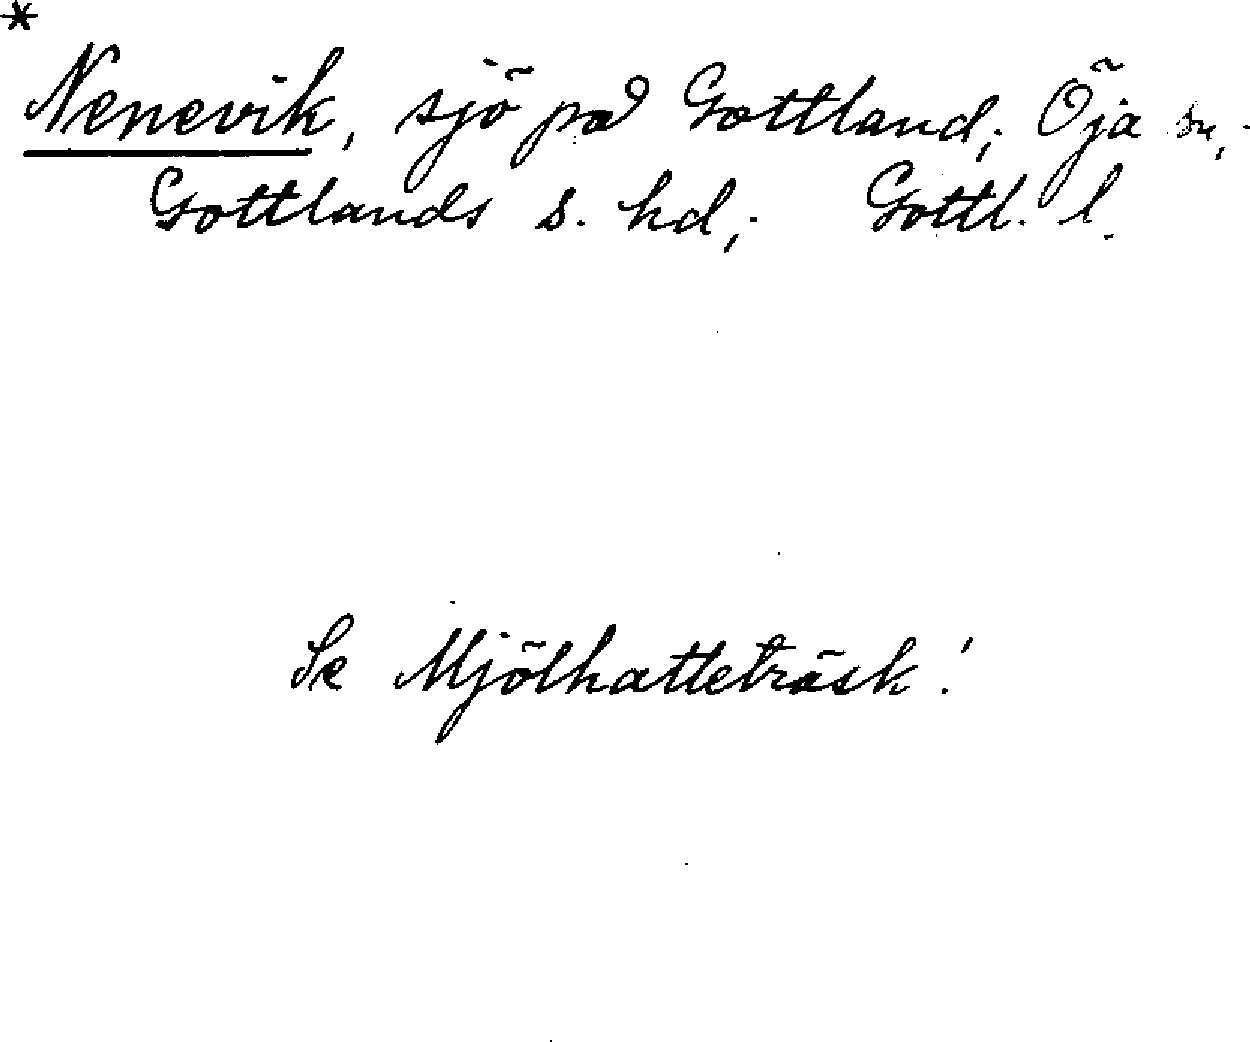 *
Nenevik, sjö på Gottland; Öja sn,
Gottlands s. hd; Gottl. l.
Se Mjölhatteträsk!